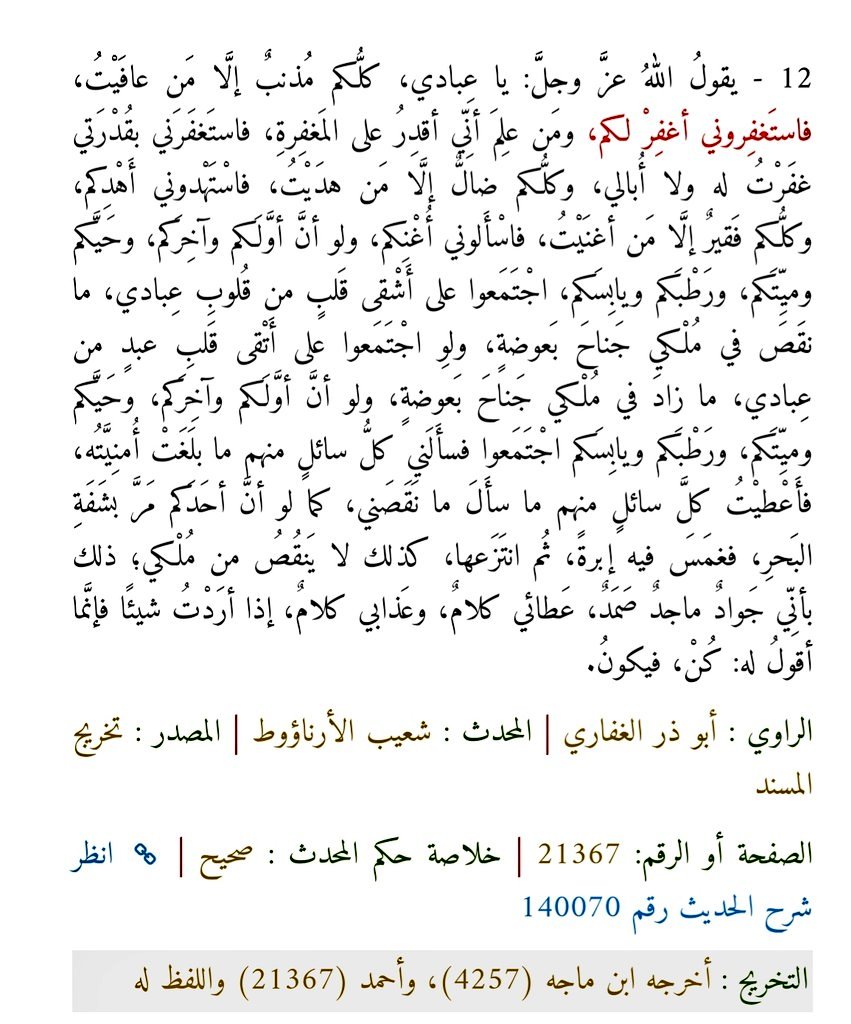 12 - يقولُ اللهُ عزَّ وجلَّ: يا عِبادي، كلُّكم مُذنبٌ إلَّا مَن عافَيْتُ،
فاستَغفِروني أغفِرْ لكم، ومَن علِمَ أنِّي أقدِرُ على المَغفِرةِ، فاستَغفَرَني بقُدْرَتي
غفَرْتُ له ولا أُبالي، وكلُّكم ضالٌّ إلَّا مَن هدَيْتُ، فاسْتَهْدوني أَهْدِكم،
وكلُّكم فَقيرٌ إلَّا مَن أغنَيْتُ، فاسْأَلوني أُغْنِكم، ولو أنَّ أوَّلَكم وآخِرَكم، وحَيَّكم
وميِّتَكم، ورَطْبَكم ويابِسَكم، اجْتَمَعوا على أَشْقى قَلبٍ من قُلوبِ عِبادي، ما
نقَصَ في مُلْكي جَناحَ بَعوضةٍ، ولوِ اجْتَمَعوا على أَتْقى قَلبِ عبدٍ من
عِبادي، ما زادَ في مُلْكي جَناحَ بَعوضةٍ، ولو أنَّ أوَّلَكم وآخِرَكم، وحَيَّكم
وميِّتَكم، ورَطْبَكم ويابِسَكم اجْتَمَعوا فسأَلَني كلُّ سائلٍ منهم ما بلَغَتْ أُمنِيَّتُه،
فأَعْطيْتُ كلَّ سائلٍ منهم ما سأَلَ ما نَقَصَني، كما لو أنَّ أحَدَكم مَرَّ بشَفَةِ
البَحرِ، فغمَسَ فيه إبرةً، ثُم انتَزَعها، كذلك لا يَنقُصُ من مُلْكي؛ ذلك
بأنِّي جَوادٌ ماجدٌ صَمَدٌ، عَطائي كلامٌ، وعَذابي كلامٌ، إذا أرَدْتُ شيئًا فإنَّما
أقولُ له: كُنْ، فيكونُ.
الراوي : أبو ذر الغفاري | المحدث : شعيب الأرناؤوط | المصدر : تخريج
المسند
الصفحة أو الرقم: 21367 | خلاصة حكم المحدث : صحيح | انظر
شرح الحديث رقم 140070
التخريج : أخرجه ابن ماجه (4257)، وأحمد (21367) واللفظ له